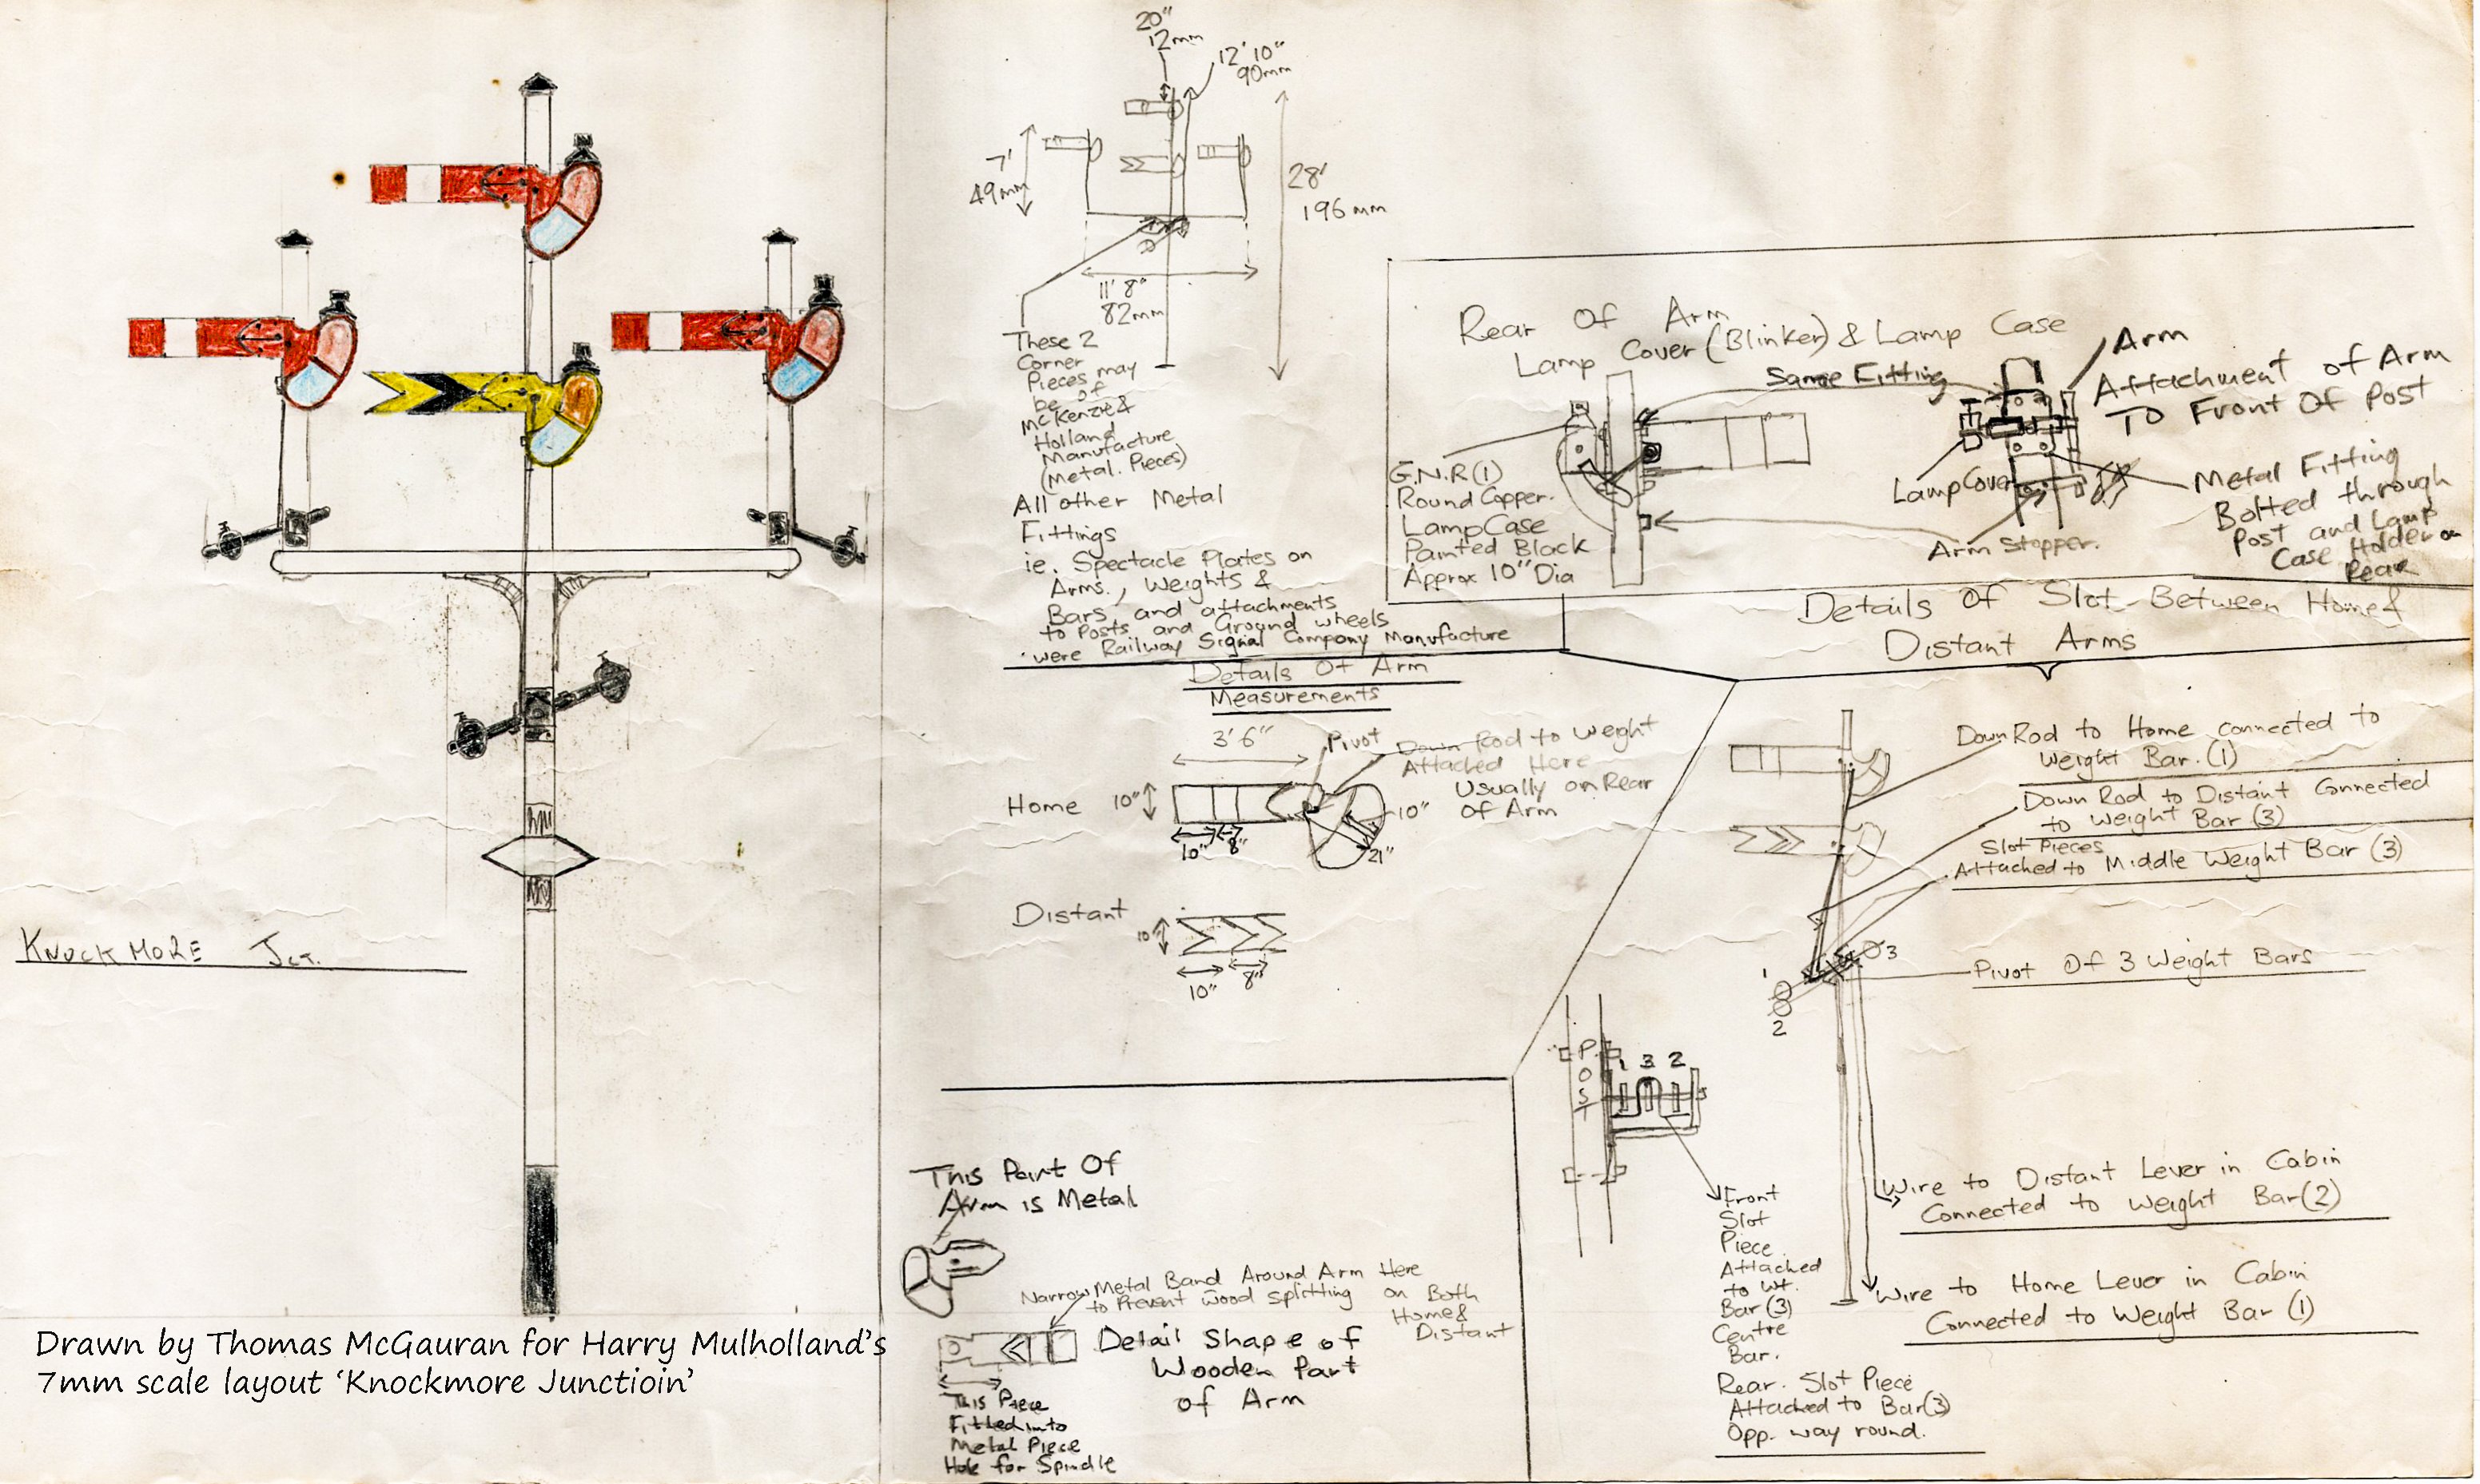 KNOCKMORE JCT.
Drawn by Thomas McGauran for Harry Mulholland's
7mm scale layout 'Knockmore Junctioin'
20"
12mm
12' 10"
90mm
7'
49mm
28'
196mm
11' 8"
82mm
These 2
Corner
Pieces may
be of
McKenzie &
Holland
Manufacture
(Metal. Pieces)
All other Metal
Fittings
ie. Spectacle Plates on
Arms., Weights &
Bars and attachments
to Posts and Ground wheels
were Railway Signal Company Manufacture
Rear Of Arm
Lamp Cover (Blinker) & Lamp Case
Same Fitting
Arm
Attachment of Arm
To Front Of Post
G.N.R (I)
Round Copper.
Lamp Case
Painted Black
Approx 10" Dia
Lamp Cover
Arm Stopper.
Metal Fitting
Bolted through
Post and Lamp
Case Holder on
Rear
Details Of Arm
Measurements
3' 6"
Pivot
Down Rod to Weight
Attached Here
Usually on Rear
Of Arm
Home
10"
10"
8"
10"
21"
Distant
10"
10"
8"
Details Of Slot Between Home &
Distant Arms
Down Rod to Home connected to
Weight Bar. (1)
Down Rod to Distant Connected
to Weight Bar (3)
Slot Pieces
Attached to Middle Weight Bar (3)
3
Pivot Of 3 Weight Bars
1
2
POST
1 3 2
Front
Slot
Piece
Attached
to Wt.
Bar (3)
Centre
Bar.
Rear. Slot Piece
Attached to Bar (3)
Opp. way round.
Wire to Distant Lever in Cabin
Connected to Weight Bar (2)
Wire to Home Lever in Cabin
Connected to Weight Bar (1)
This Part Of
Arm is Metal
Narrow Metal Band Around Arm Here
to Prevent Wood Splitting on Both
Home &
Distant
Detail Shape of
Wooden Part
of Arm
This Piece
Fitted into
Metal Piece
Hole for Spindle